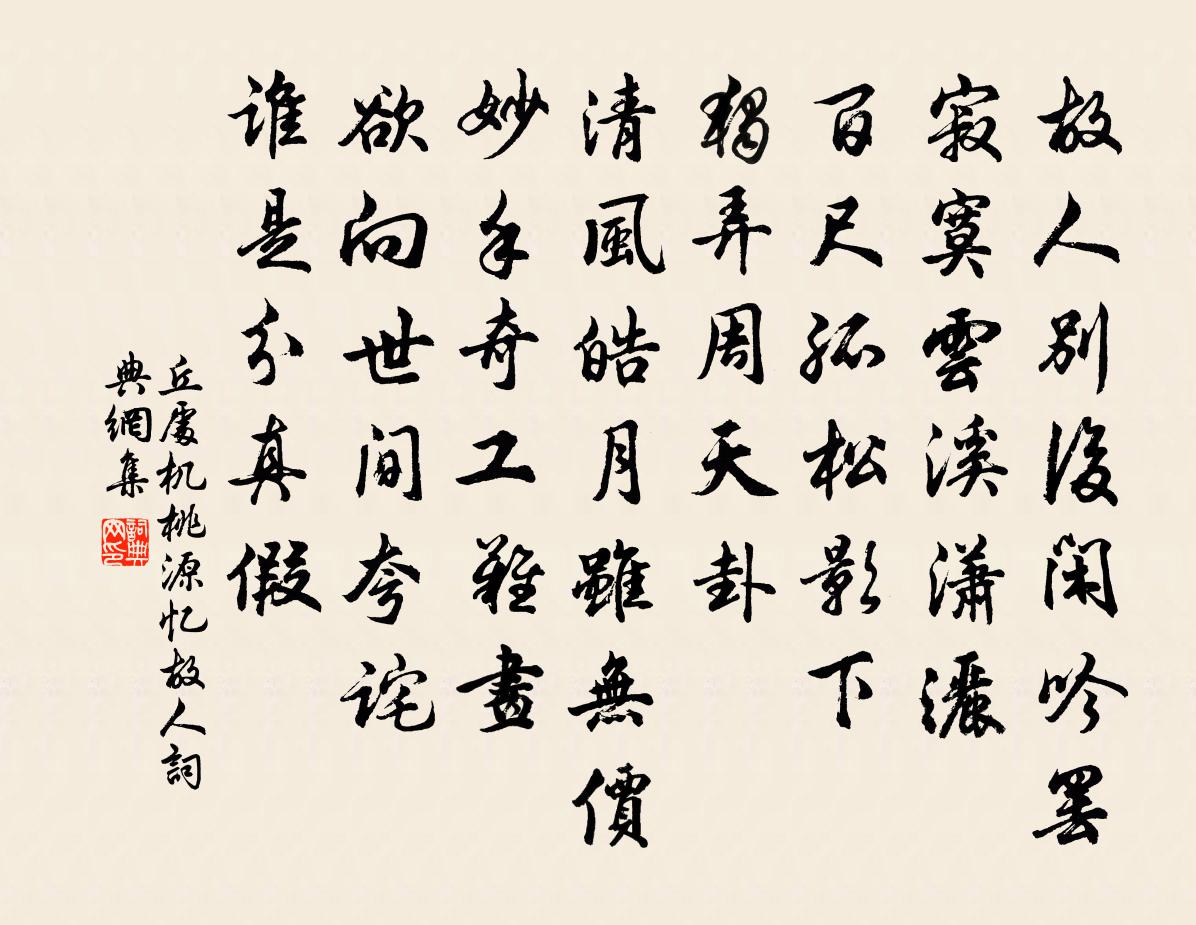 故人別後閑吟罢
寂寞雲溪瀟灑
百尺孤松影下
獨弄周天卦
清風皓月雖無價
妙手奇工難畫
欲向世间夸诧
谁是分真假
丘處机桃源忆故人詞
典網集
詞典网印